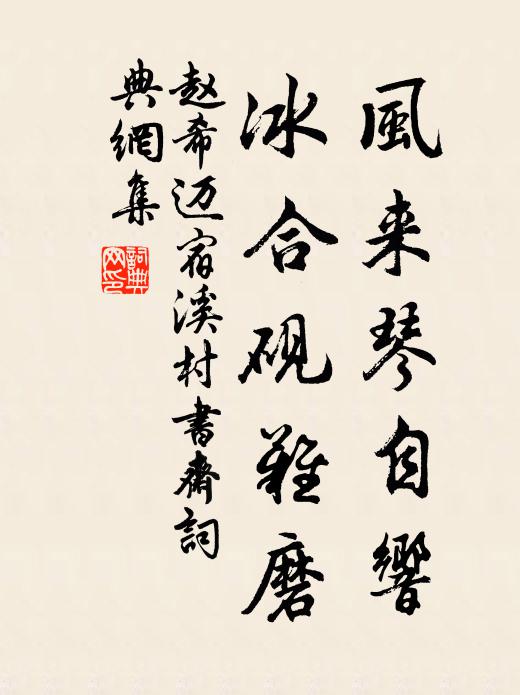 風来琴自響
冰合硯難磨
赵希迈宿溪村書齋詞
典網集
詞典
网印